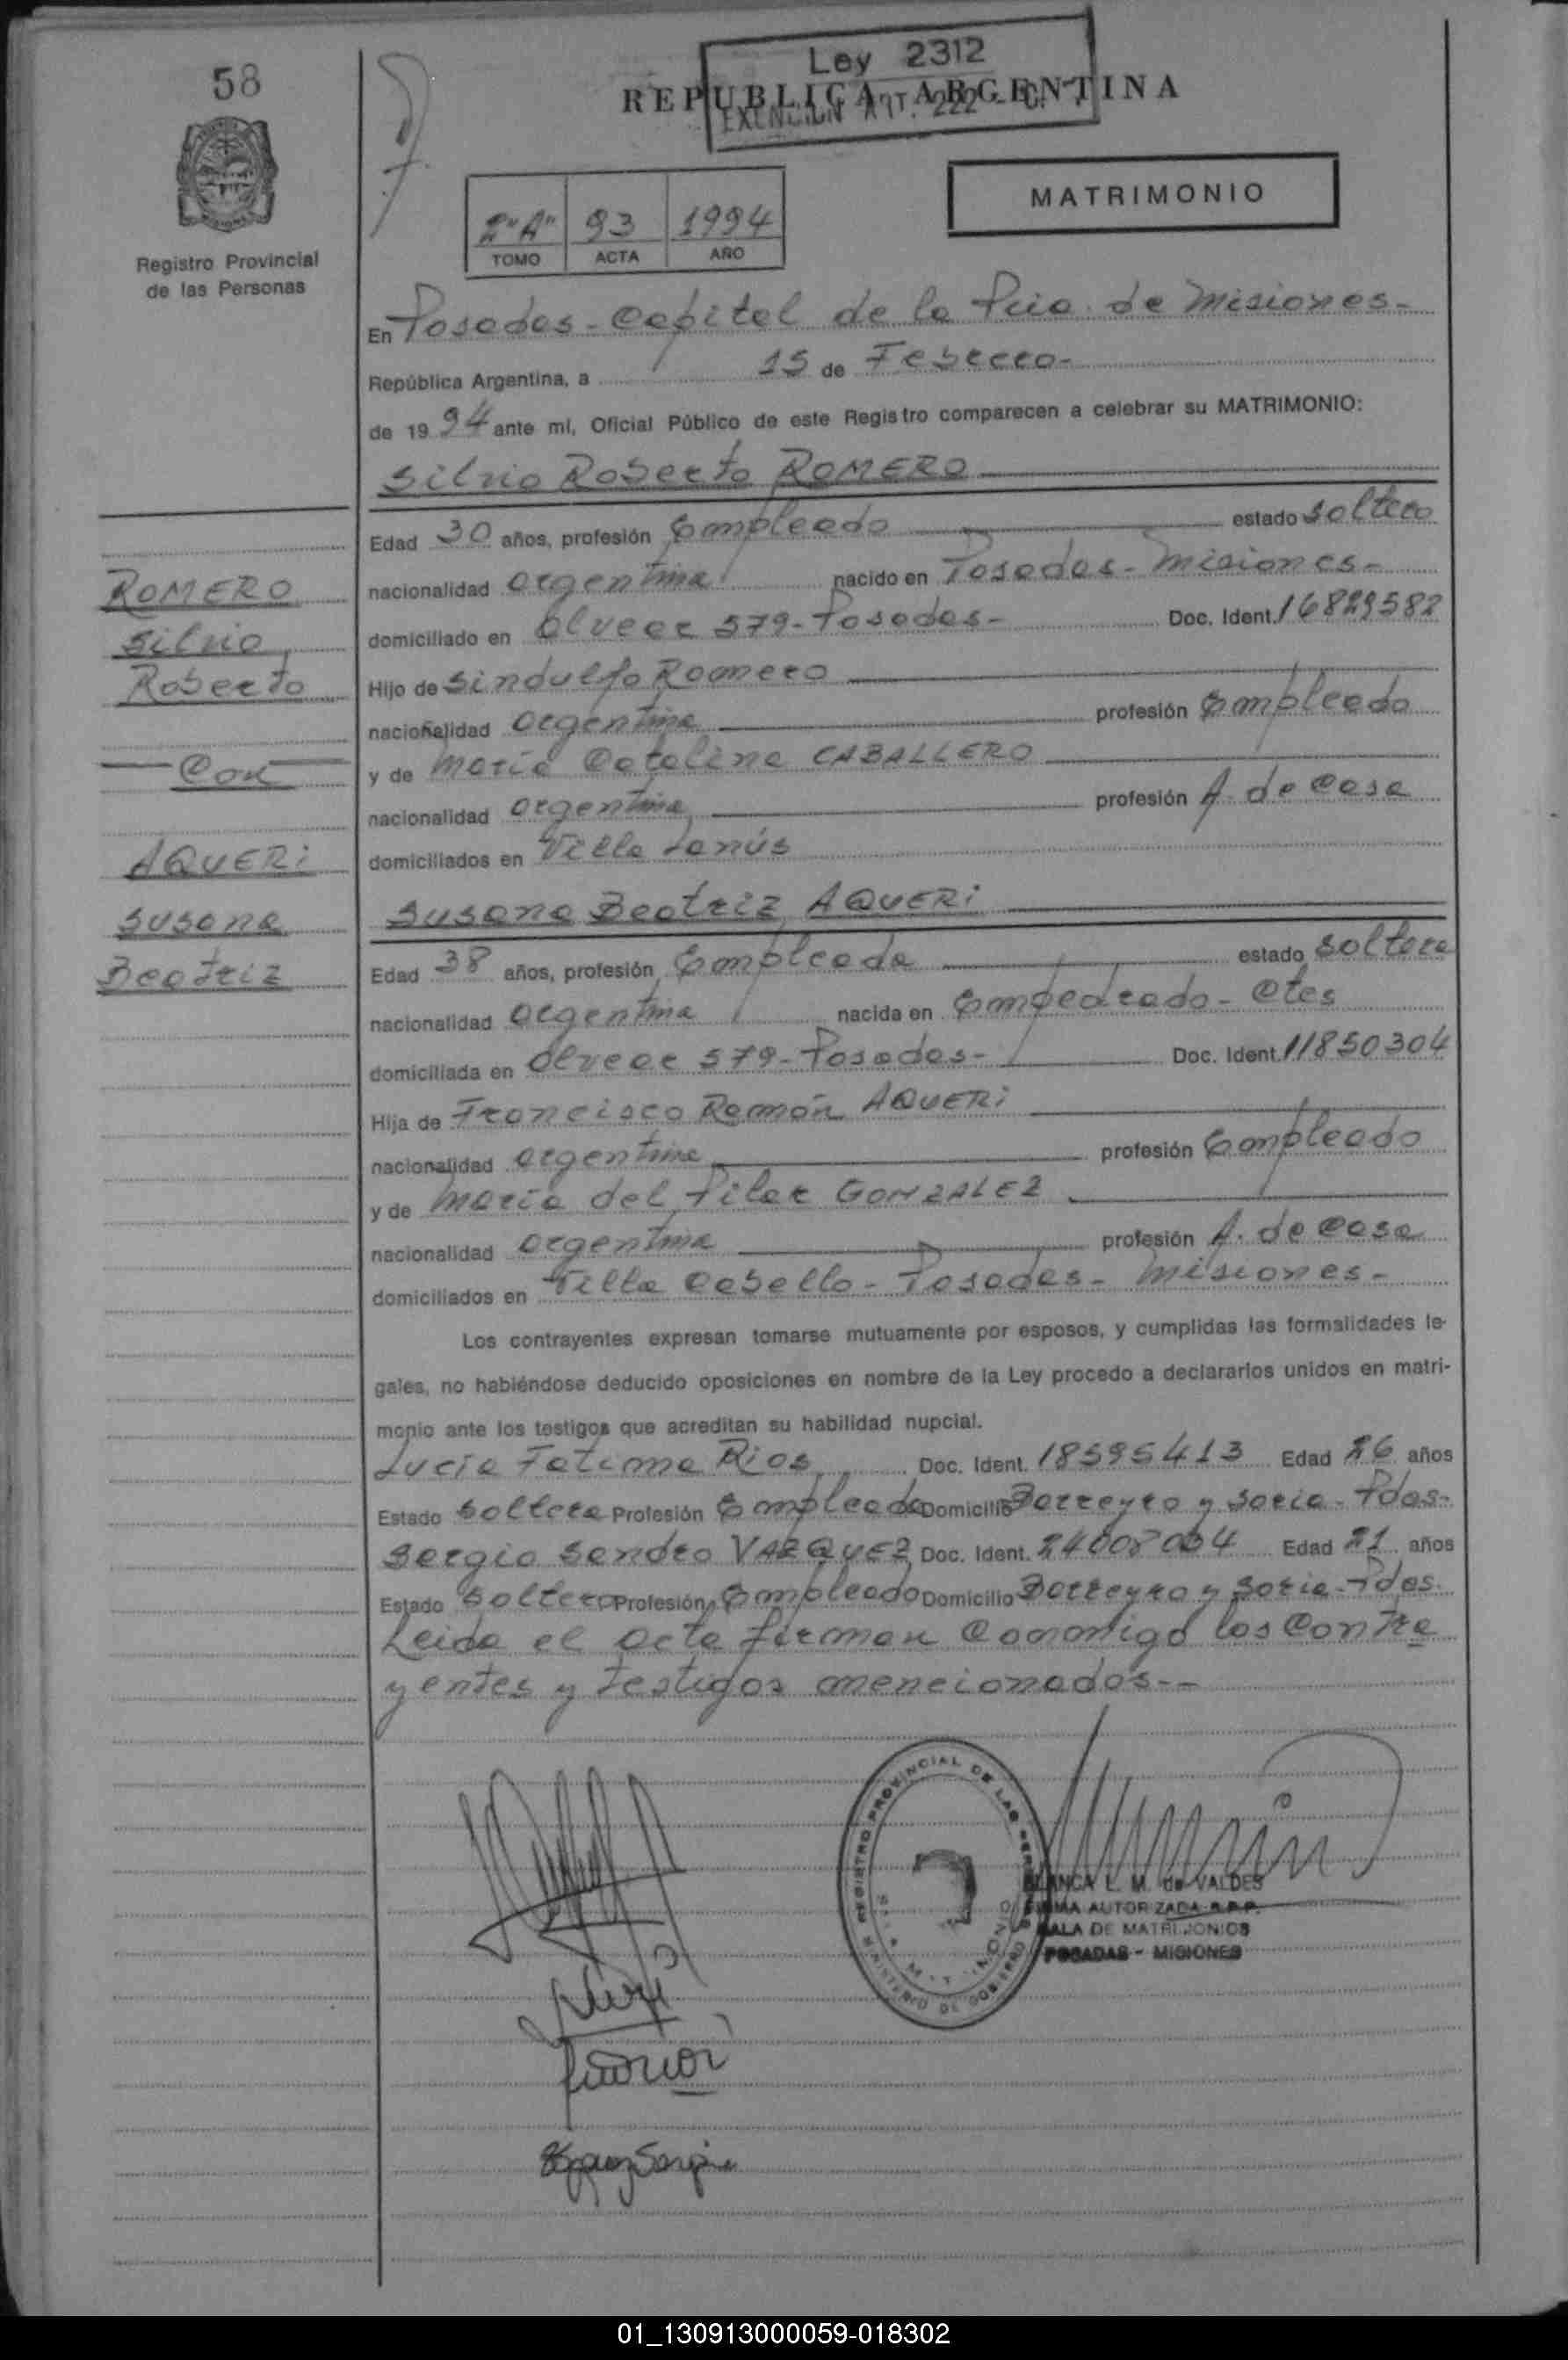 58
Ley 2312
REPUBLICA ARGENTINA
EXENCION ART. 222
MATRIMONIO
2"A" 93 1994
TOMO ACTA AÑO
Registro Provincial
de las Personas
En Posadas - Capital de la Pcia. de Misiones-
República Argentina, a 15 de Febrero-
de 1994 ante mí, Oficial Público de este Registro comparecen a celebrar su MATRIMONIO:
Silvio Roberto ROMERO
Edad 30 años, profesión Empleado estado soltero
nacionalidad argentina nacido en Posadas - Misiones-
domiciliado en Alvear 579 - Posadas- Doc. Ident. 16829582
Hijo de Sindulfo Romero
nacionalidad argentina profesión Empleado
y de María Catalina CABALLERO
nacionalidad argentina profesión A. de Casa
domiciliados en Villa Lanús
Susana Beatriz AQUERI
Edad 38 años, profesión Empleada estado soltera
nacionalidad argentina nacida en Empedrado - Ctes
domiciliada en Alvear 579 - Posadas- Doc. Ident. 11850304
Hija de Francisco Ramón AQUERI
nacionalidad argentina profesión Empleado
y de María del Pilar GONZALEZ
nacionalidad argentina profesión A. de Casa
domiciliados en Villa Cabello - Posadas - Misiones-
Los contrayentes expresan tomarse mutuamente por esposos, y cumplidas las formalidades le-
gales, no habiéndose deducido oposiciones en nombre de la Ley procedo a declararlos unidos en matri-
monio ante los testigos que acreditan su habilidad nupcial.
Lucía Fatima Rios Doc. Ident. 18595413 Edad 26 años
Estado soltera Profesión Empleada Domicilio Barreyro y Soria - Pdas-
Sergio Sandro VAZQUEZ Doc. Ident. Edad 21 años
Estado soltero Profesión Empleado Domicilio Barreyro y Soria - Pdas.
Leida el acta firman conmigo los Contra
yentes y testigos mencionados--
ROMERO
Silvio
Roberto
Con
AQUERI
Susana
Beatriz
REGISTRO PROVINCIAL DE LAS PERSONAS
MINISTERIO DE GOBIERNO
BLANCA L. M. de VALDES
FIRMA AUTORIZADA R.P.P.
SALA DE MATRIMONIOS
POSADAS - MISIONES
01_130913000059-018302